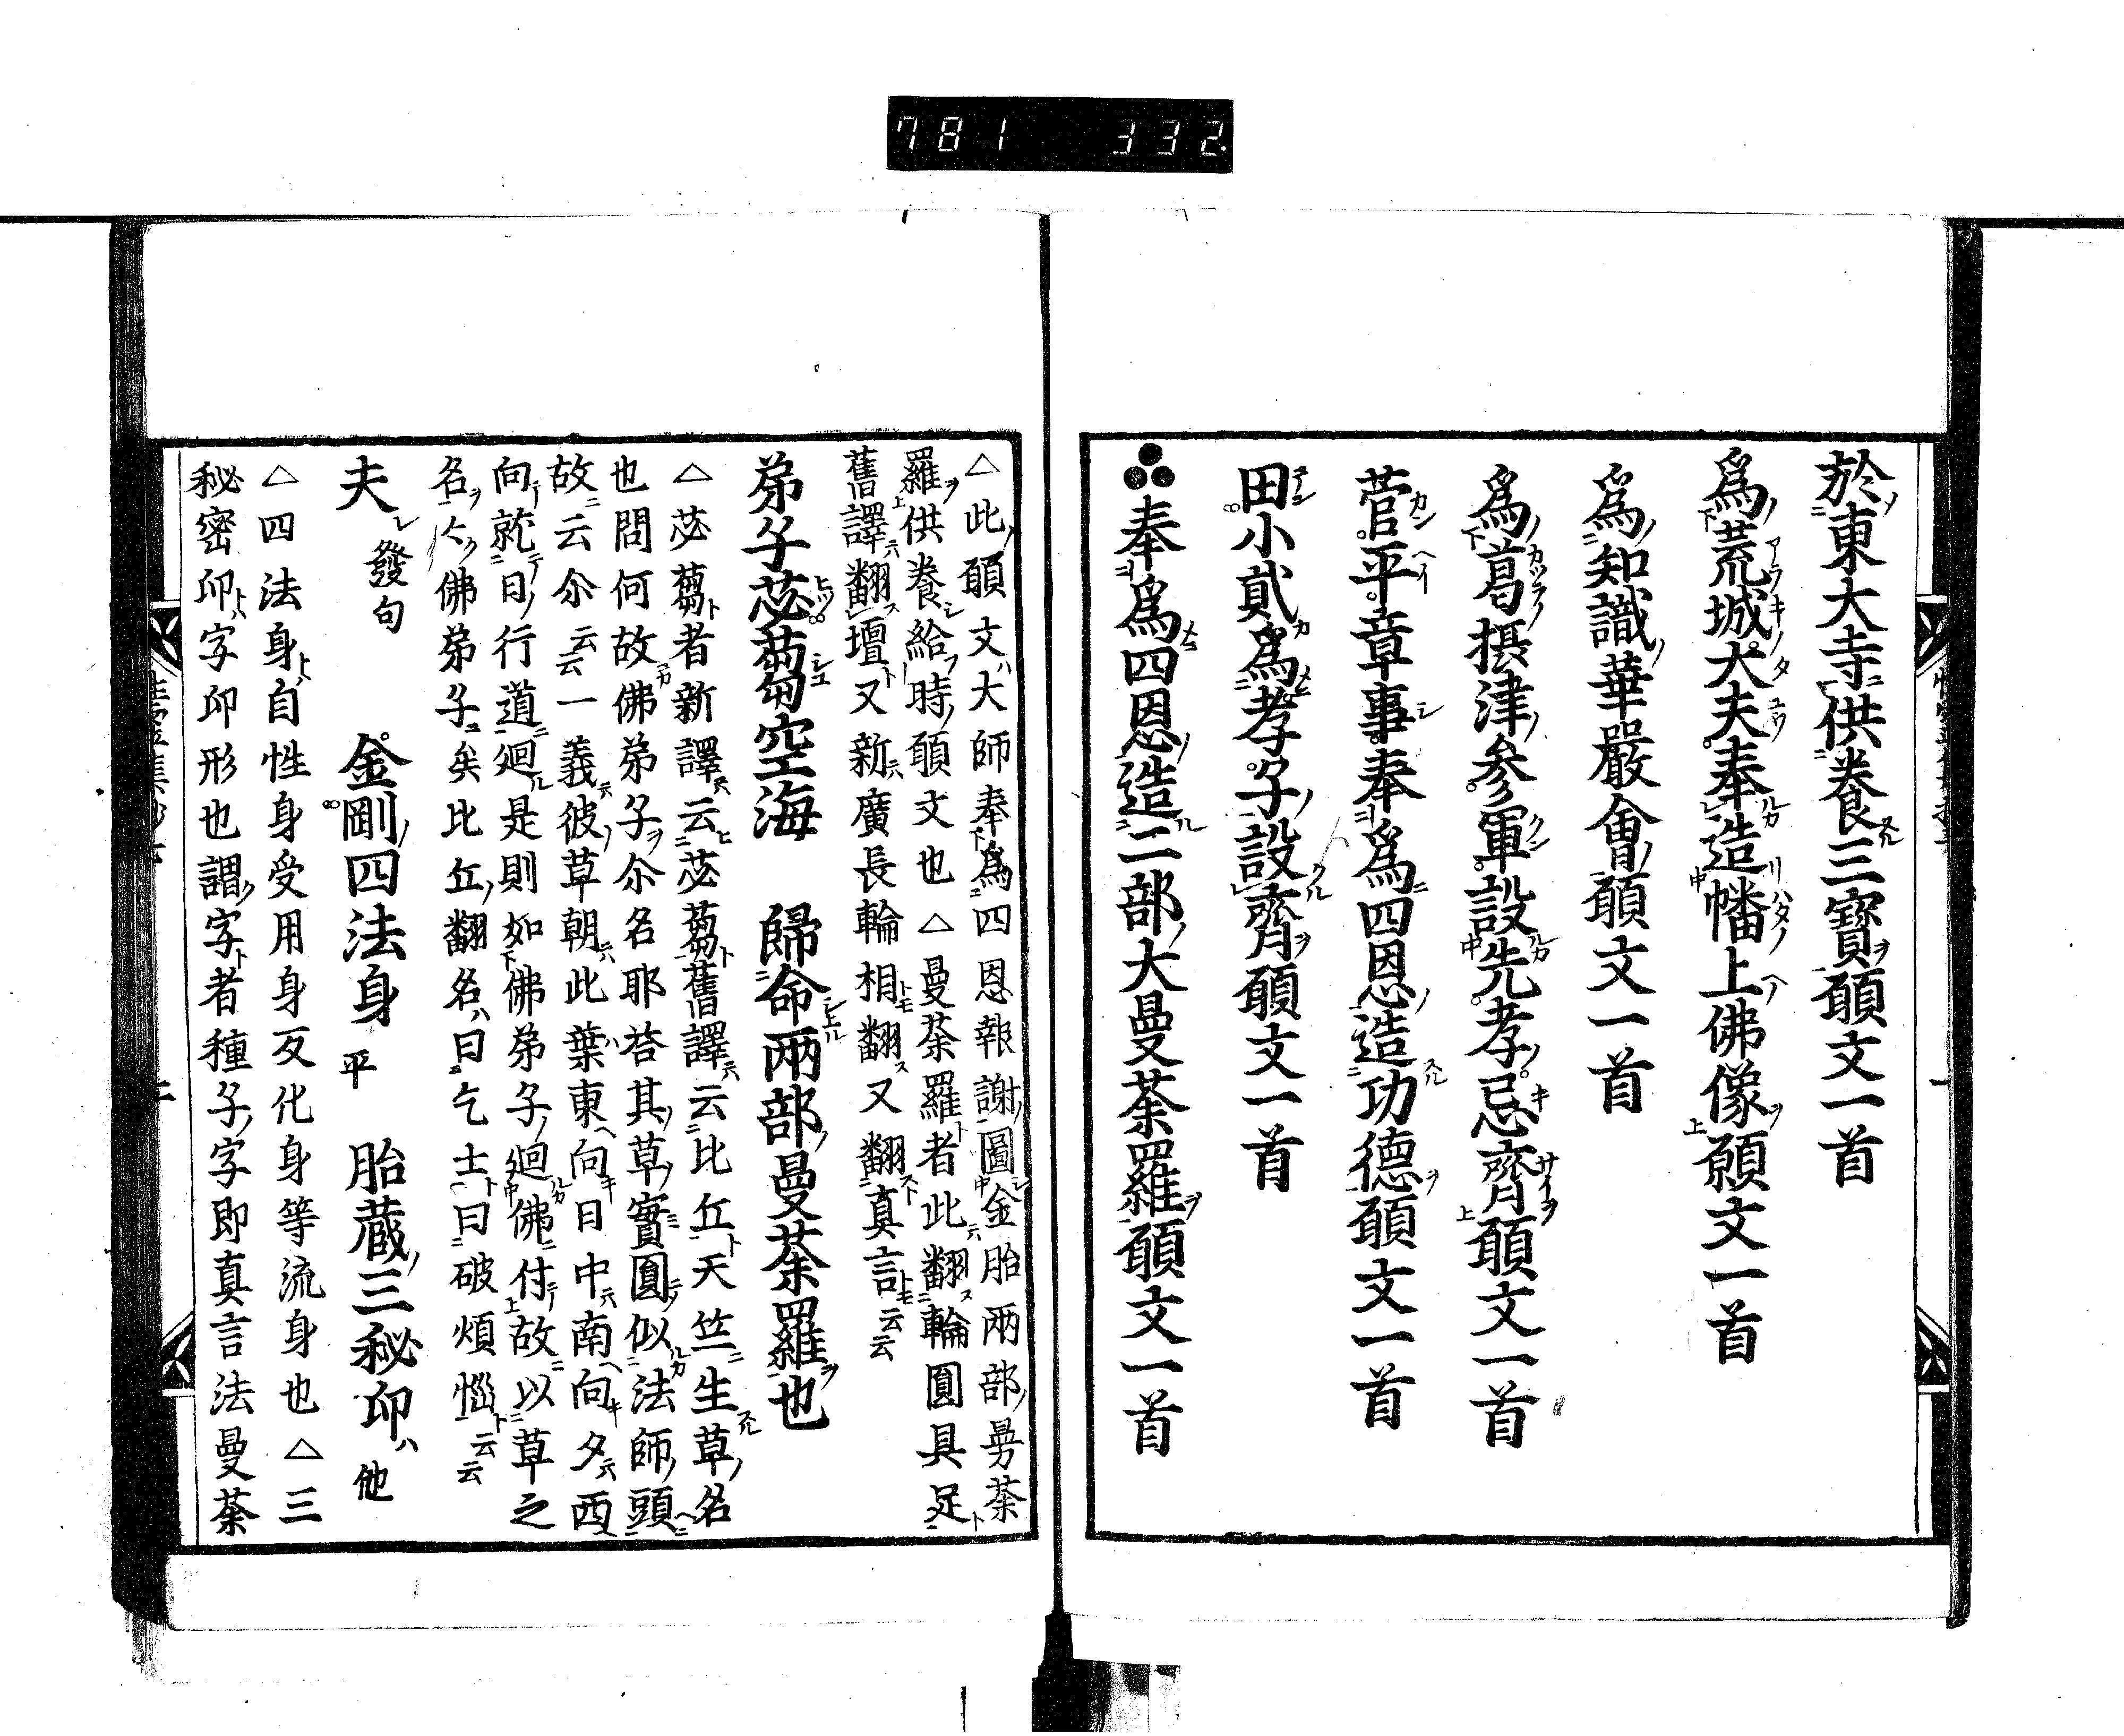 781 332
於東大寺供養三寶願文一首
爲荒城大夫奉造幡上佛像願文一首
爲知識華嚴會願文一首
爲葛摂津参軍設先孝忌齊願文一首
菅平章事奉爲四恩造功德願文一首
田小貳爲孝子設齊願文一首
奉爲四恩造二部大曼荼羅願文一首
△此願文大師奉爲四恩報謝圖金胎兩部曼荼
羅供養給時願文也△曼荼羅者此翻輪圓具足
舊譯翻壇又新廣長輪相翻又翻真言云云
弟子苾蒭空海 歸命兩部曼荼羅也
△苾蒭者新譯云苾蒭舊譯云比丘天竺生草名
也問何故佛弟子尒名耶荅其草實圓似法師頭
故云尒云云一義彼草朝此葉東向日中南向夕西
向就日行道廻是則如佛弟子廻佛付故以草之
名佛弟子矣比丘翻名曰乞士曰破煩惱云云
夫 發句 金剛四法身 平 胎蔵三秘印 他
△四法身自性身受用身反化身等流身也△三
秘密印字印形也謂字者種子字即真言法曼荼